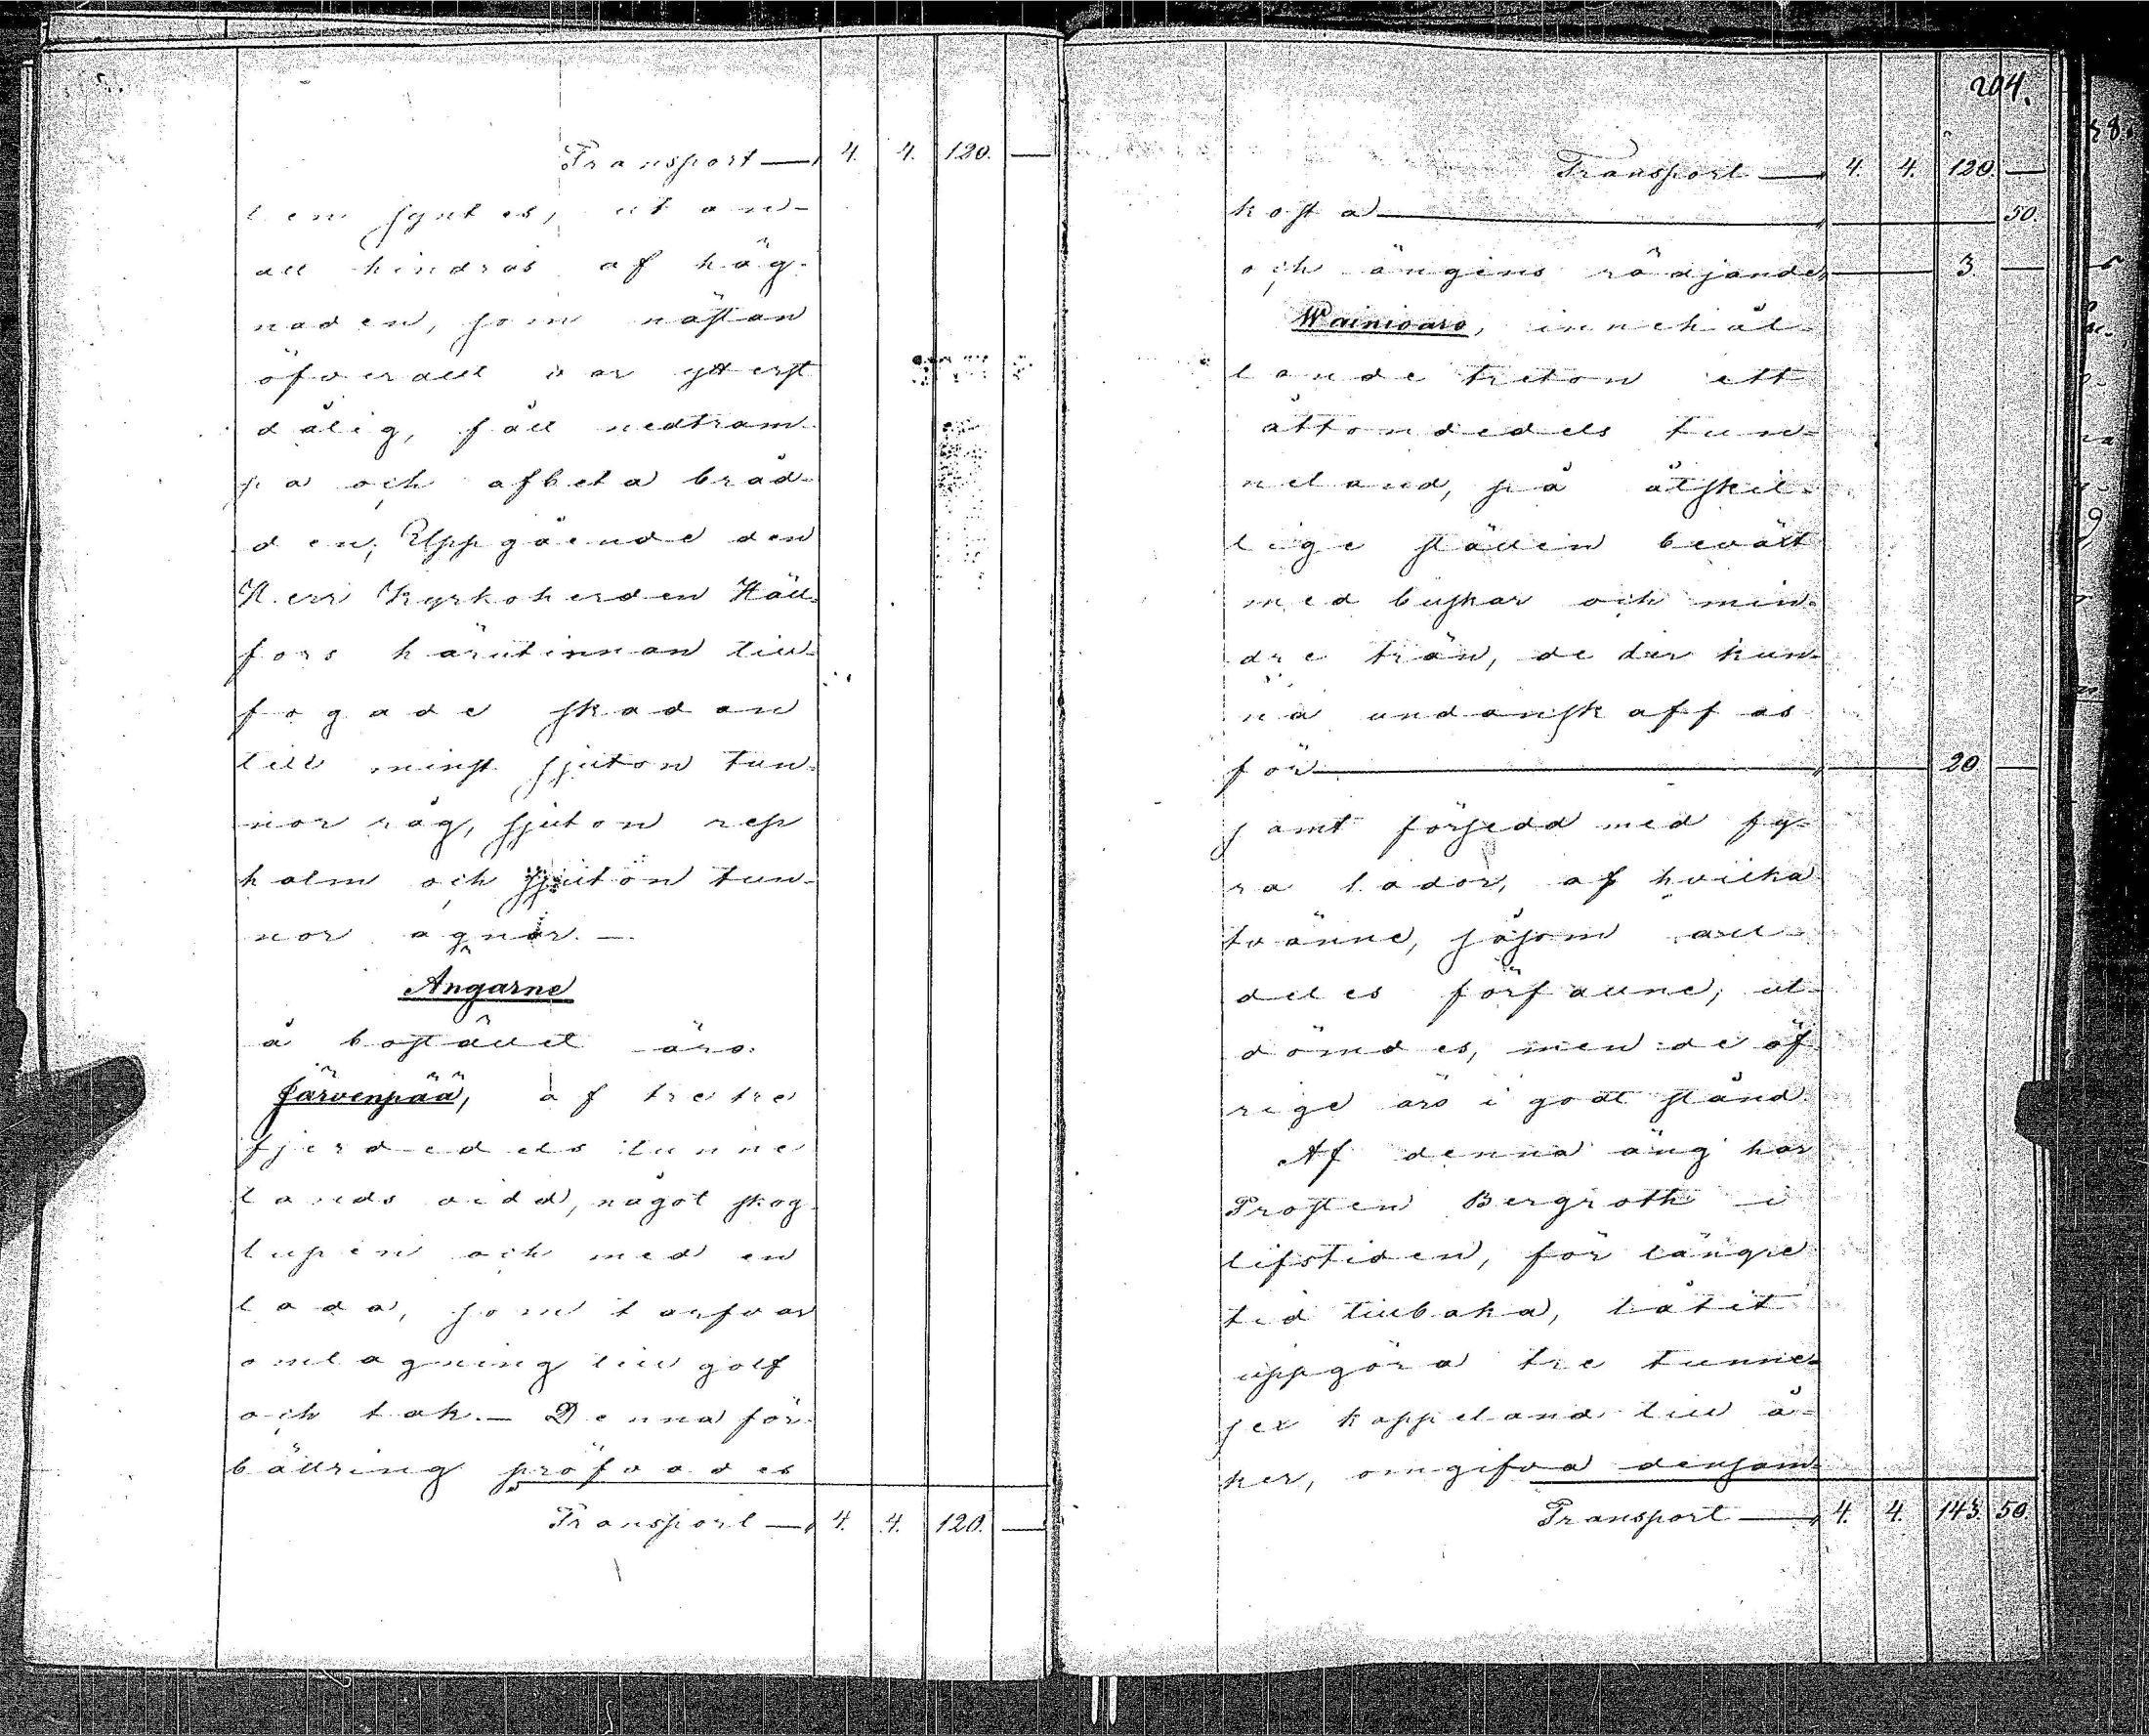 Transport — 4. 4. 120. —
len syntes, utan
all hindras af häg-
naden, som nästan
öfverallt var ytterst
dålig, fått nedtram-
pa och afbeta bråd-
den; Uppgående den
Herr Kyrkoherden Häll-
fors härutinnan till-
fogade skadan
till minst sjuton tun-
nor råg, sjuton rep
halm och sjuton tun-
nor agnar. —
Ängarne
å bostället äro:
Järvenpää, af tre tre
fjerdedels tunne
lands vidd, något skog
lupen och med en
lada, som tarfvar
omlagning till golf
och tak. — Denna för-
bättring pröfvades
Transport — 4. 4. 120. —
204.
Transport — 4. 4. 120. —
kosta — 50.
och ängens rödjande — 3. —
Wainioaro, innehål-
lande tretton ett
åttondedels tun-
neland, på åtskil-
lige ställen bevält
med buskar och min-
dre trän, de der kun-
na undanskaffas
för — 20 —
samt försedd med fy-
ra lador, af hvilka
tvänne, såsom all-
deles förfallne, ut-
dömdes, men de öf-
rige äro i godt stånd.
Af denna äng har
Prosten Bergroth i
lifstiden, för längre
tid tillbaka, låtit
uppgöra tre tunne-
sex kappeland till å-
ker, omgifva densam-
Transport — 4. 4. 143. 50.